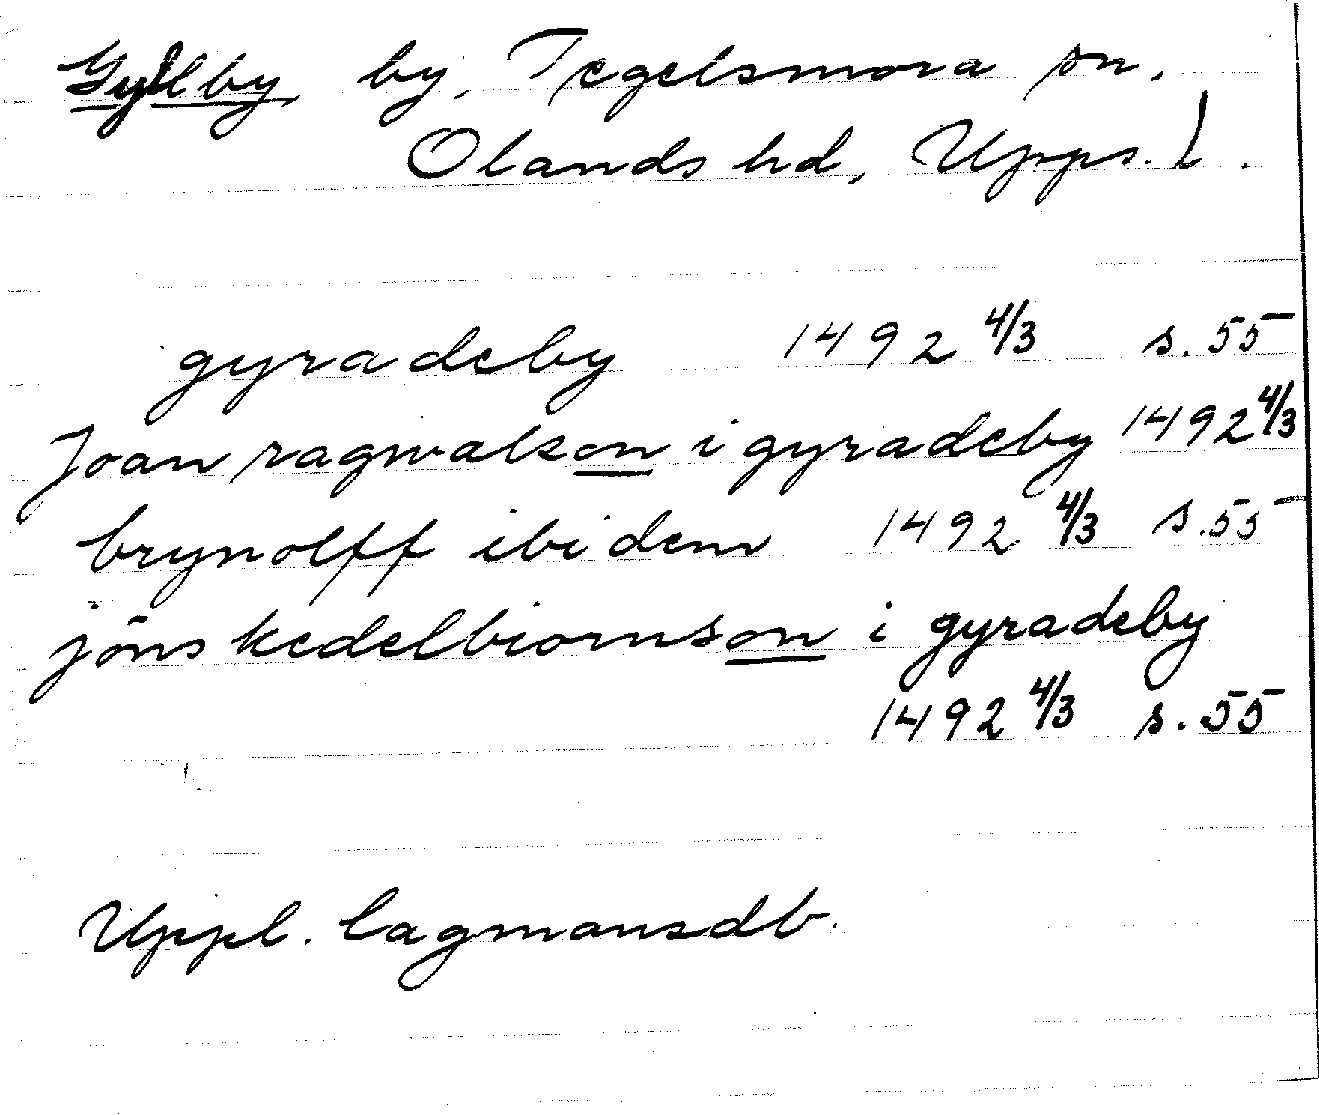 Gyllby by, Tegelsmora sn.
Olands hd, Upps. l.
gyradeby 1492 4/3 s. 55
Joan ragwalson i gyradeby 1492 4/3
brynolff ibidem 1492 4/3 s. 55
jöns kedelbiornson i gyradeby
1492 4/3 s. 55
Uppl. lagmansdb.